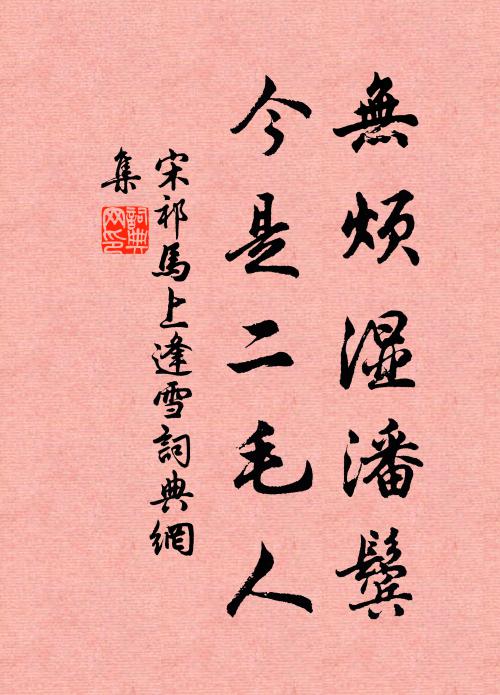 無煩湿潘鬢
今是二毛人
宋祁馬上逢雪詞典網
集
詞典网印